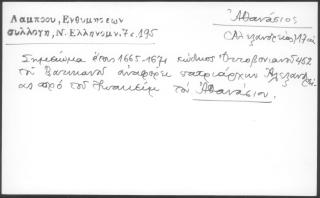 Λαμπρου, Ενθυμησεων
συλλογη, Ν. Ελληνομν. 7 σ. 195
Ἀθανάσιος
(Ἀλεξανδρείας) 17 αἰ.
Σημείωμα ἔτους 1665-1671 κώδικος Ὀττοβονιανοῦ 452
τοῦ Βατικανοῦ ἀναφέρει πατριάρχην Ἀλεξανδρεί
ας πρό τοῦ Ἰωακείμ τόν Ἀθανάσιον.